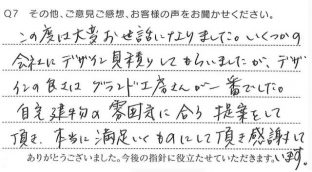 Q7 その他、ご意見ご感想、お客様の声をお聞かせください。
この度は大変お世話になりました。いくつかの
会社にデザイン見積りしてもらいましたが、デザ
インの良さはグランド工房さんが一番でした。
自宅建物の雰囲気に合う提案をして
頂き、本当に満足いくものにして頂き感謝して
います。
ありがとうございました。今後の指針に役立たせていただきます。